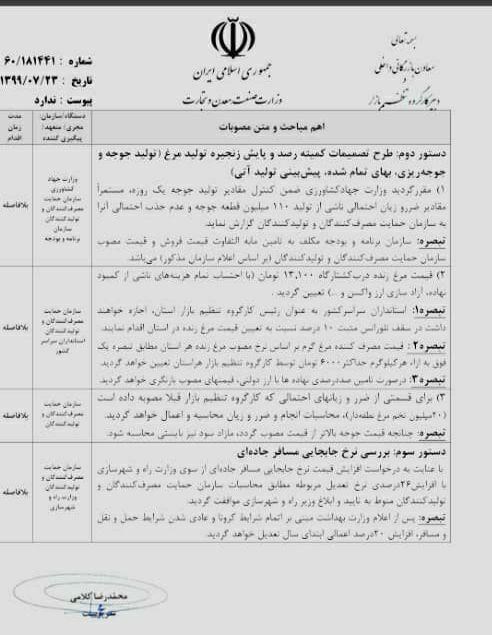 بسمه تعالی
معاون بازرگانی داخلی
و
دبیر کارگروه تنظیم بازار
جمهوری اسلامی ایران
وزارت صنعت، معدن و تجارت
شماره : ۶۰/۱۸۱۴۴۱
تاریخ : ۱۳۹۹/۰۷/۲۳
پیوست : ندارد
اهم مباحث و متن مصوبات
دستگاه/سازمان:
مجری/متعهد/
پیگیری کننده
مدت
زمان
اقدام
دستور دوم: طرح تصمیمات کمیته رصد و پایش زنجیره تولید مرغ (تولید جوجه و
جوجه‌ریزی، بهای تمام شده، پیش‌بینی تولید آتی)
۱) مقرر گردید وزارت جهادکشاورزی ضمن کنترل مقادیر تولید جوجه یک روزه، مستمراً
مقادیر ضررو زیان احتمالی ناشی از تولید ۱۱۰ میلیون قطعه جوجه و عدم جذب احتمالی آنرا
به سازمان حمایت مصرف‌کنندگان و تولیدکنندگان گزارش نماید.
تبصره: سازمان برنامه و بودجه مکلف به تامین مابه التفاوت قیمت فروش و قیمت مصوب
سازمان حمایت مصرف‌کنندگان و تولیدکنندگان (بر اساس اعلام سازمان مذکور) می‌باشد.
وزارت جهاد
کشاورزی
سازمان حمایت
مصرف‌کنندگان و
تولیدکنندگان
سازمان
برنامه و بودجه
بلافاصله
۲) قیمت مرغ زنده درب‌کشتارگاه ۱۳,۱۰۰ تومان (با احتساب تمام هزینه‌های ناشی از کمبود
نهاده، آزاد سازی ارز واکسن و ...) تعیین گردید .
تبصره۱: استانداران سراسرکشور به عنوان رئیس کارگروه تنظیم بازار استان، اجازه خواهند
داشت در سقف تلورانس مثبت ۱۰ درصد نسبت به تعیین قیمت مرغ زنده در استان اقدام نمایند.
تبصره۲ : قیمت مصرف کننده مرغ گرم بر اساس نرخ مصوب مرغ زنده هر استان مطابق تبصره یک
فوق به ازاء هرکیلوگرم حداکثر۶۰۰۰ تومان توسط کارگروه تنظیم بازار هراستان تعیین خواهد گردید.
تبصره۳: درصورت تامین صددرصدی نهاده ها با ارز دولتی، قیمتهای مصوب بازنگری خواهد گردید.
سازمان حمایت
مصرف‌کنندگان و
تولیدکنندگان
استانداران سراسر
کشور
بلافاصله
۳) برای قسمتی از ضرر و زیانهای احتمالی که کارگروه تنظیم بازار قبلا مصوبه داده است
(۲۰میلیون تخم مرغ نطفه‌دار)، محاسبات انجام و ضرر و زیان محاسبه و اعمال خواهد گردید.
تبصره: چنانچه قیمت جوجه بالاتر از قیمت مصوب گردد، مازاد سود نیز بایستی محاسبه شود.
سازمان حمایت
مصرف‌کنندگان و
تولیدکنندگان
بلافاصله
دستور سوم: بررسی نرخ جابجایی مسافر جاده‌ای
با عنایت به درخواست افزایش قیمت نرخ جابجایی مسافر جاده‌ای از سوی وزارت راه و شهرسازی
با افزایش۲۶درصدی نرخ تعدیل مربوطه مطابق محاسبات سازمان حمایت مصرف‌کنندگان و
تولیدکنندگان منوط به تایید و ابلاغ وزیر راه و شهرسازی موافقت گردید.
تبصره: پس از اعلام وزارت بهداشت مبنی بر اتمام شرایط کرونا و عادی شدن شرایط حمل و نقل
و مسافر، افزایش ۲۰درصد اعمالی ابتدای سال تعدیل خواهد گردید.
سازمان حمایت
مصرف‌کنندگان و
تولیدکنندگان
وزارت راه و
شهرسازی
بلافاصله
محمدرضا کلامی